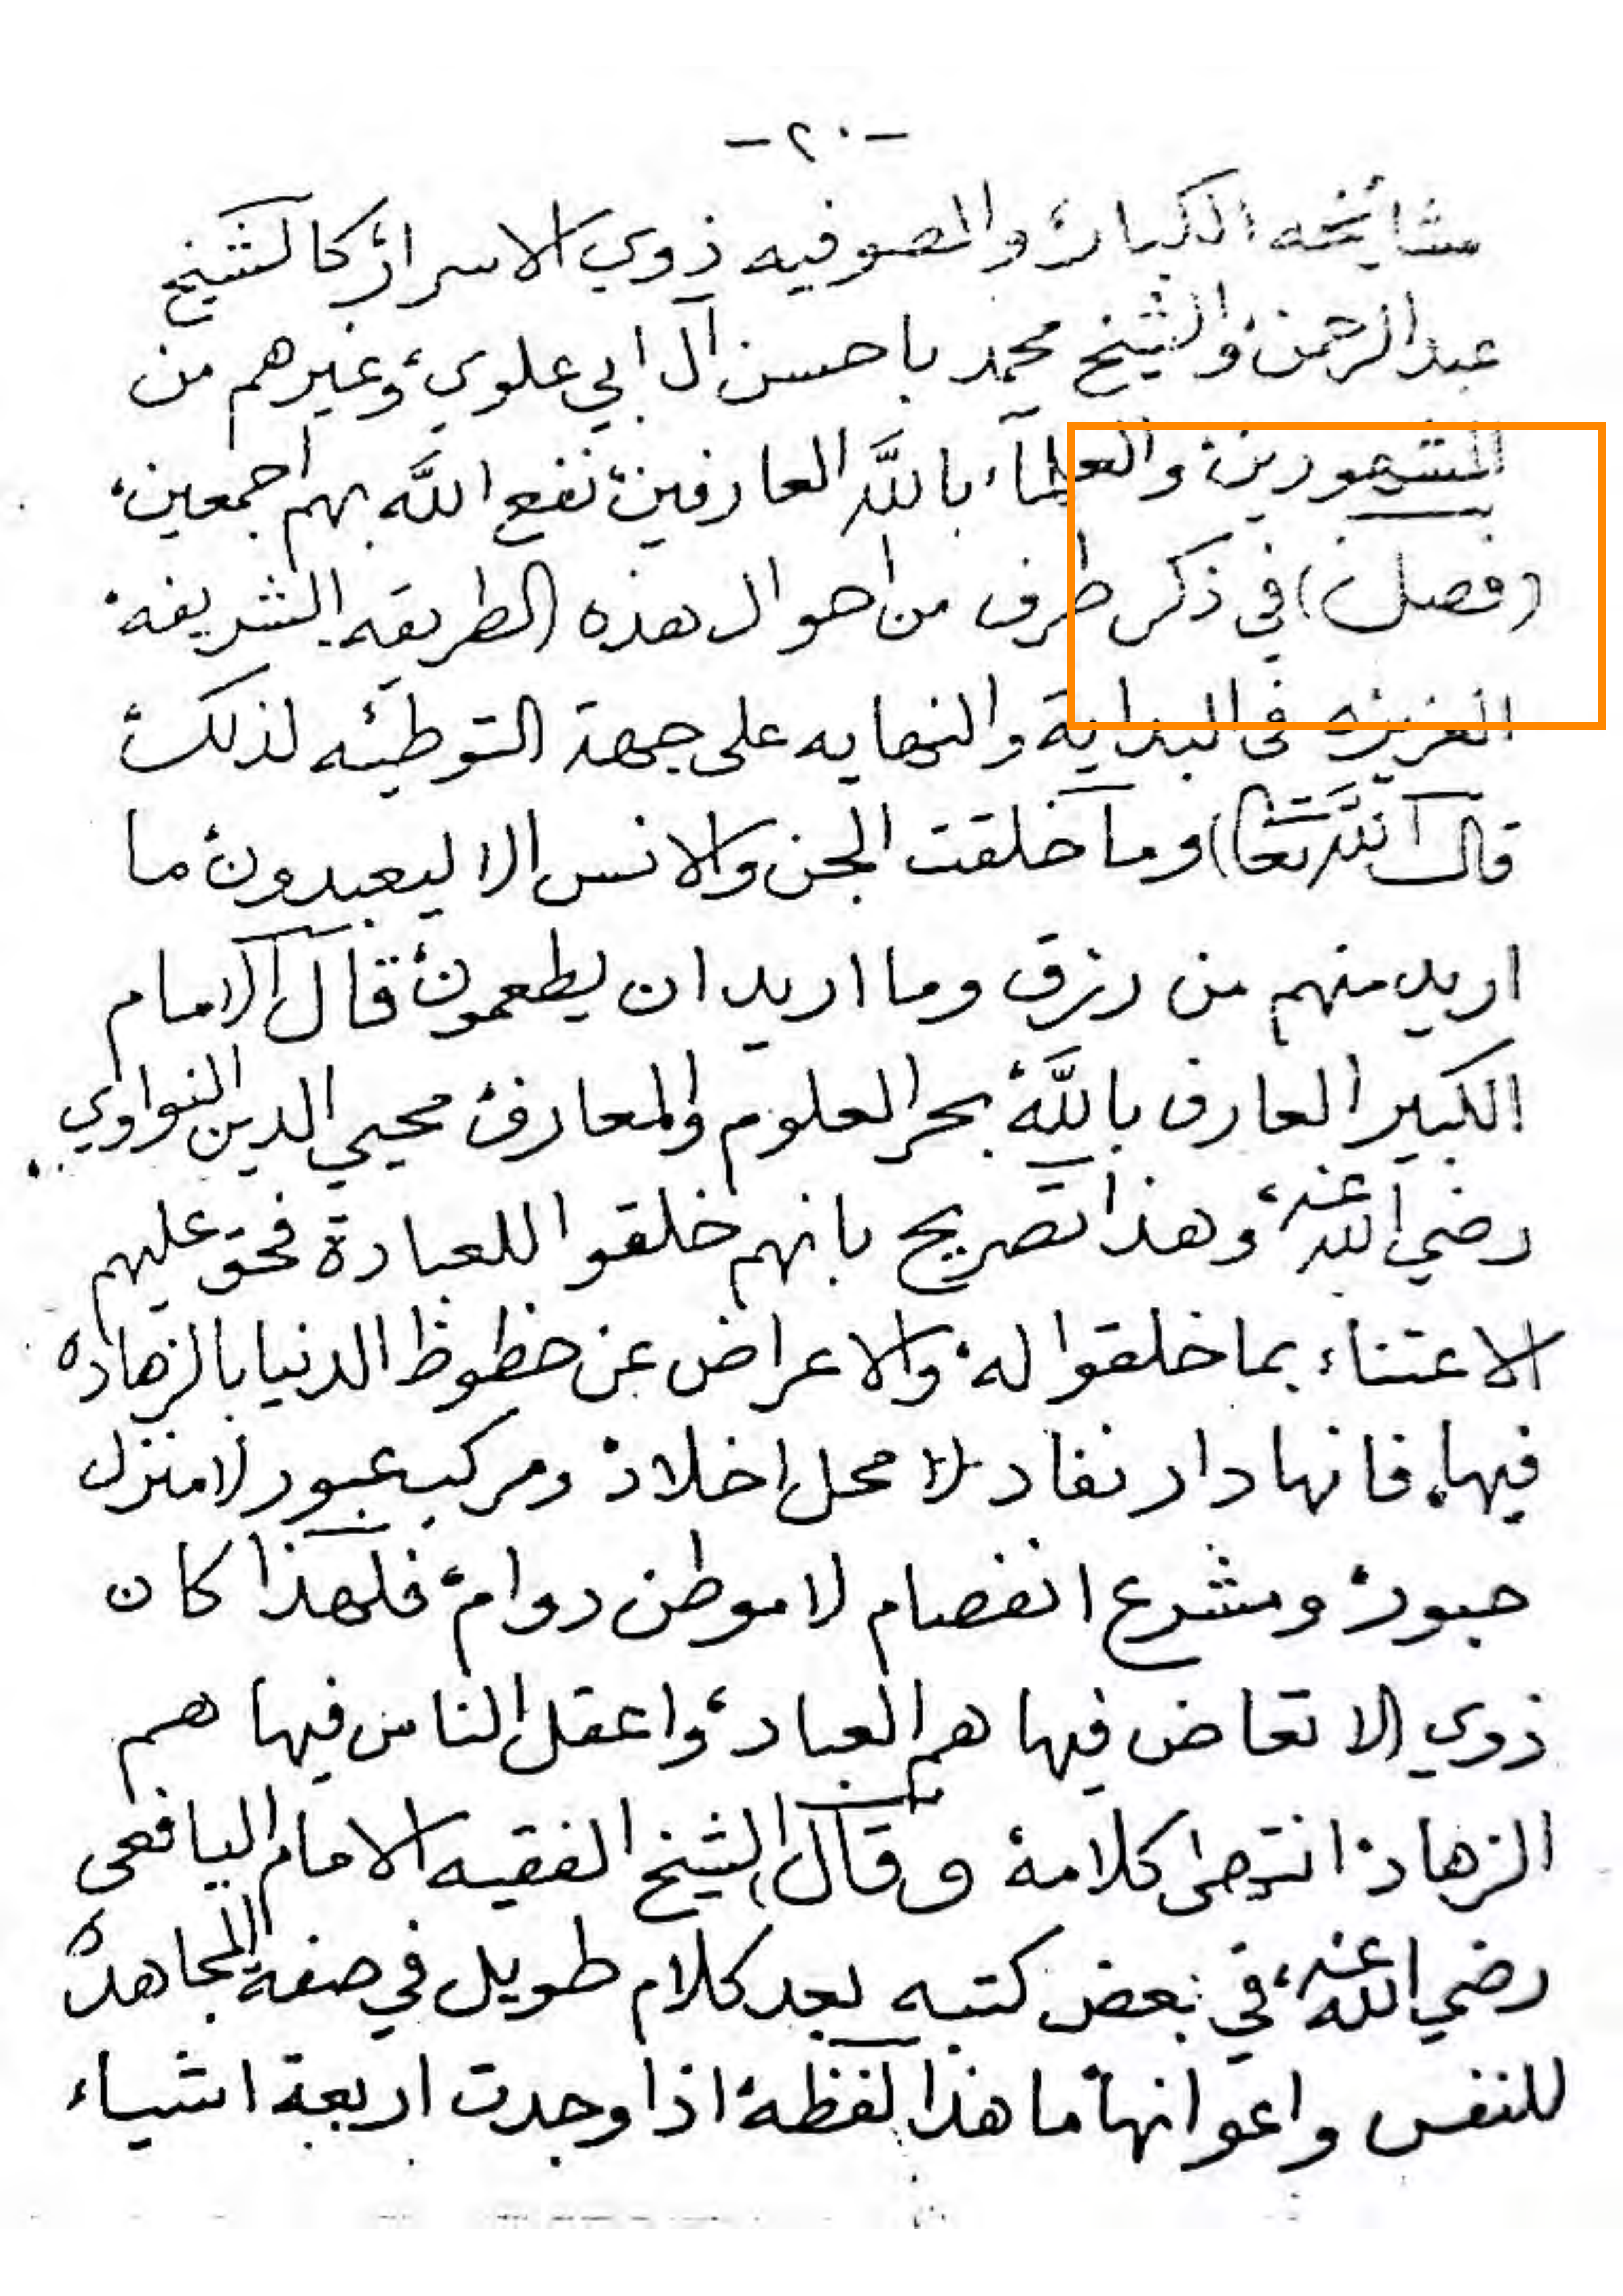 -٢٠-
مشايخه الكبار والصوفيه ذوي الاسرار كالشيخ
عبد الرحمن والشيخ محمد با حسن آل ابي علوي وغيرهم من
المشهورين والعلمآء بالله العارفين نفع الله بهم اجمعين
(فصل) في ذكر طرف من احوال هذه الطريقه الشريفه
العزيزه في البداية والنهايه على جهة التوطئه لذلك
قال الله تعا) وما خلقت الجن والانس الا ليعبدون ما
اريد منهم من رزق وما اريد ان يطعمون قال الامام
الكبير العارف بالله بحر العلوم والمعارف محيي الدين النواوي
رضي الله عنه وهذا تصريح بانهم خلقوا للعبادة فحق عليهم
الاعتناء بما خلقوا له والاعراض عن حظوظ الدنيا بالزهاده
فيها فانها دار نفاد لا محل اخلاد ومركب عبور لا منزل
حبور ومشرع انفصام لا موطن دوام فلهذا كان
ذوي الاتعاض فيها هم العباد واعقل الناس فيها هم
الزهاد انتهى كلامه وقال الشيخ الفقيه الامام اليافعي
رضي الله عنه في بعض كتبه بعد كلام طويل في صفة المجاهده
للنفس واعوانها ما هذا لفظه اذا وجدت اربعة اشياء